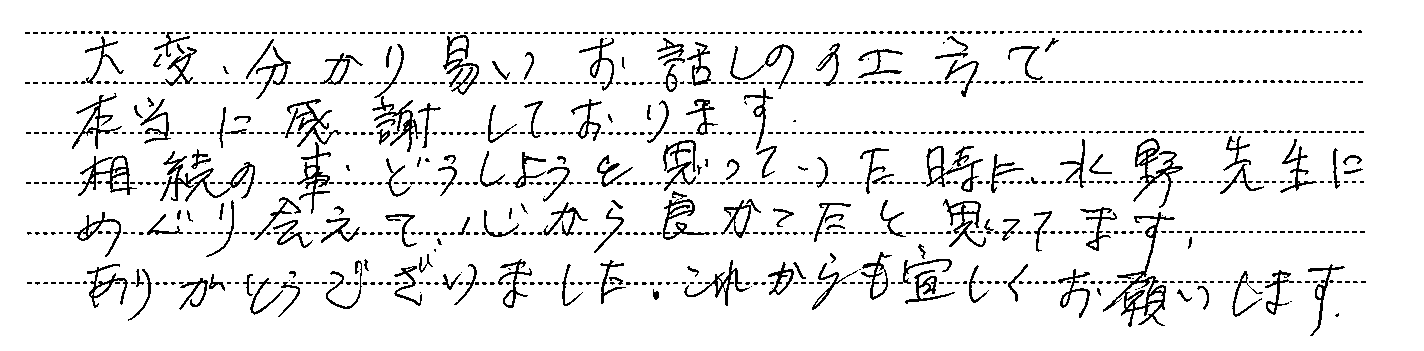 大変、分かり易いお話しの仕方で
本当に感謝しております。
相続の事、どうしようと思っていた時に、水野先生に
めぐり会えて、心から良かったと思ってます。
ありがとうございました。これからも宜しくお願いします。